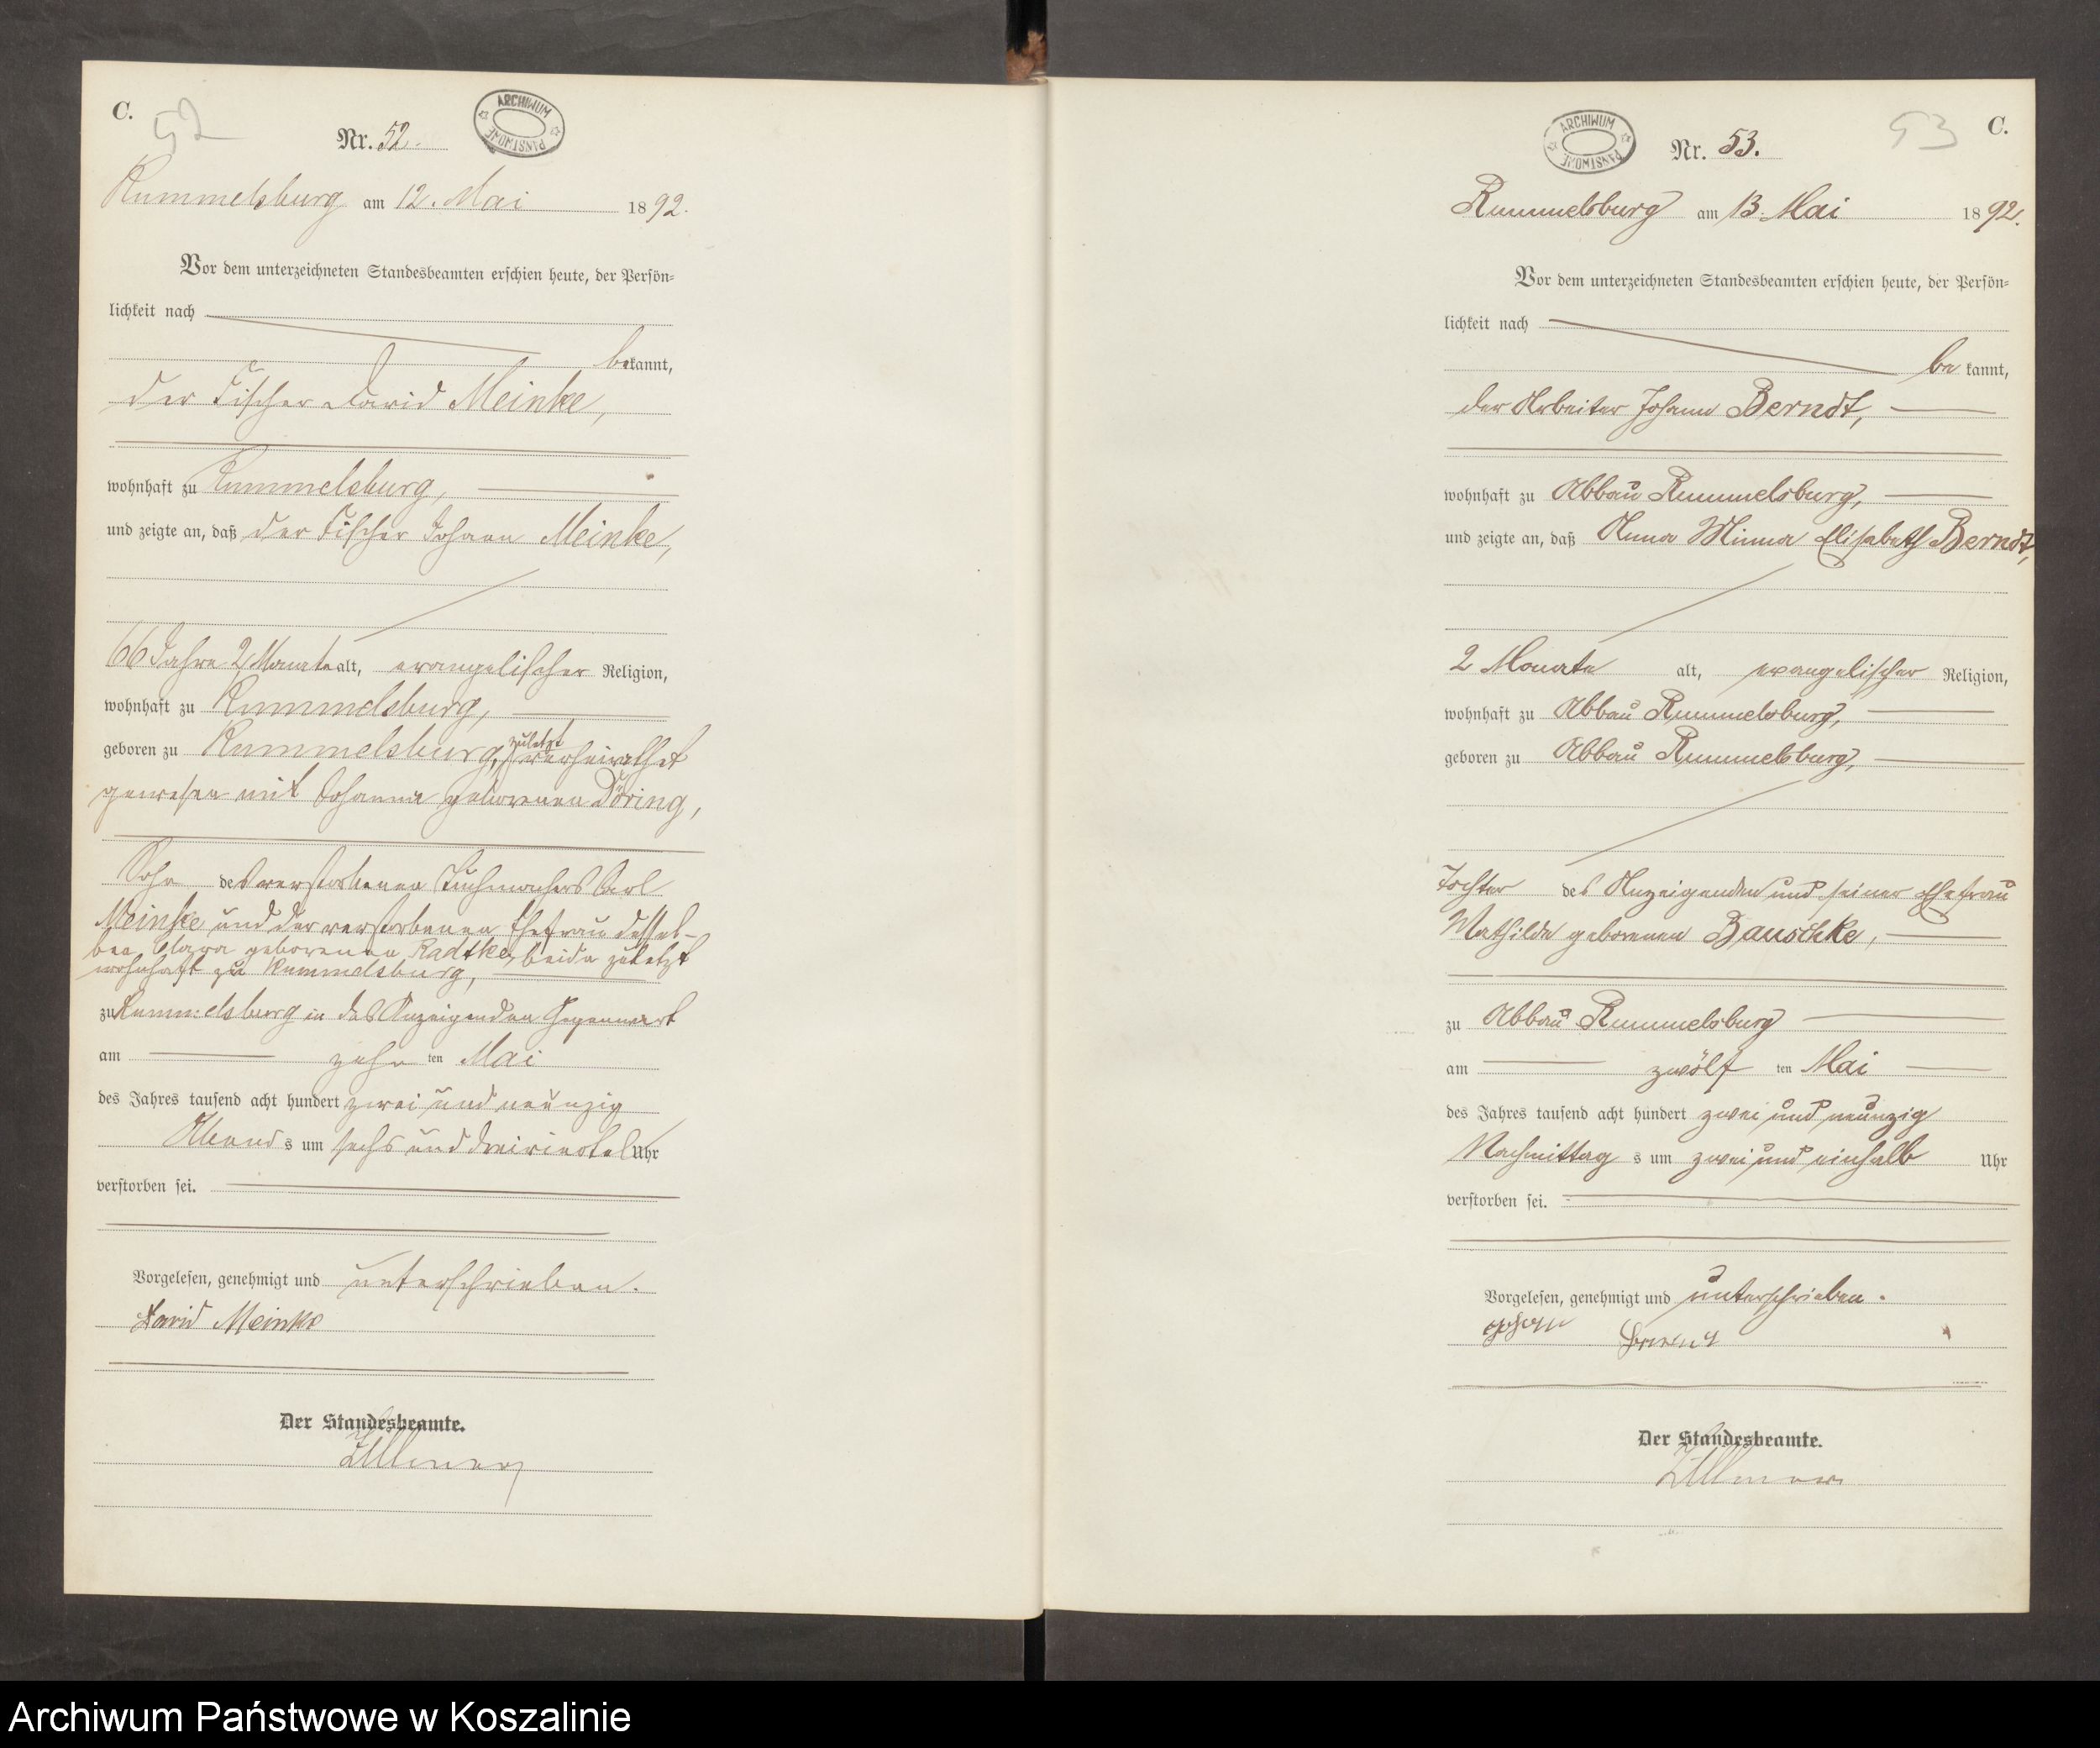 C.
52
Nr. 52.
ARCHIWUM PAŃSTWOWE
Rummelsburg am 12. Mai 1892.
Vor dem unterzeichneten Standesbeamten erschien heute, der Persön-
lichkeit nach
bekannt,
der Fischer David Meinke,
wohnhaft zu Rummelsburg,
und zeigte an, daß der Fischer Johann Meinke,
66 Jahre 2 Monate alt, evangelischer Religion,
wohnhaft zu Rummelsburg,
geboren zu Rummelsburg, zuletzt verheirathet
gewesen mit Johanna geborenen Döring,
Sohn des verstorbenen Tuchmachers Carl
Meinke und der verstorbenen Ehefrau dessel-
ben, geborenen Radtke, beide zuletzt
wohnhaft zu Rummelsburg,
zu Rummelsburg in des Anzeigenden Gegenwart
am zehn ten Mai
des Jahres tausend acht hundert zwei und neunzig
Abends um sechs und dreiviertel Uhr
verstorben sei.
Vorgelesen, genehmigt und unterschrieben.
David Meinke
Der Standesbeamte.
Zillmer
C.
53
ARCHIWUM PAŃSTWOWE
Nr. 53.
Rummelsburg am 13. Mai 1892.
Vor dem unterzeichneten Standesbeamten erschien heute, der Persön-
lichkeit nach
bekannt,
der Arbeiter Johann Berndt,
wohnhaft zu Abbau Rummelsburg,
und zeigte an, daß Anna Minna Elisabeth Berndt,
2 Monate alt, evangelischer Religion,
wohnhaft zu Abbau Rummelsburg,
geboren zu Abbau Rummelsburg,
Tochter des Anzeigenden und seiner Ehefrau
Mathilde geborenen Bauschke,
zu Abbau Rummelsburg
am zwölf ten Mai
des Jahres tausend acht hundert zwei und neunzig
Nachmittags um zwei und einhalb Uhr
verstorben sei.
Vorgelesen, genehmigt und unterschrieben.
Johann
Der Standesbeamte.
Zillmer
Archiwum Państwowe w Koszalinie